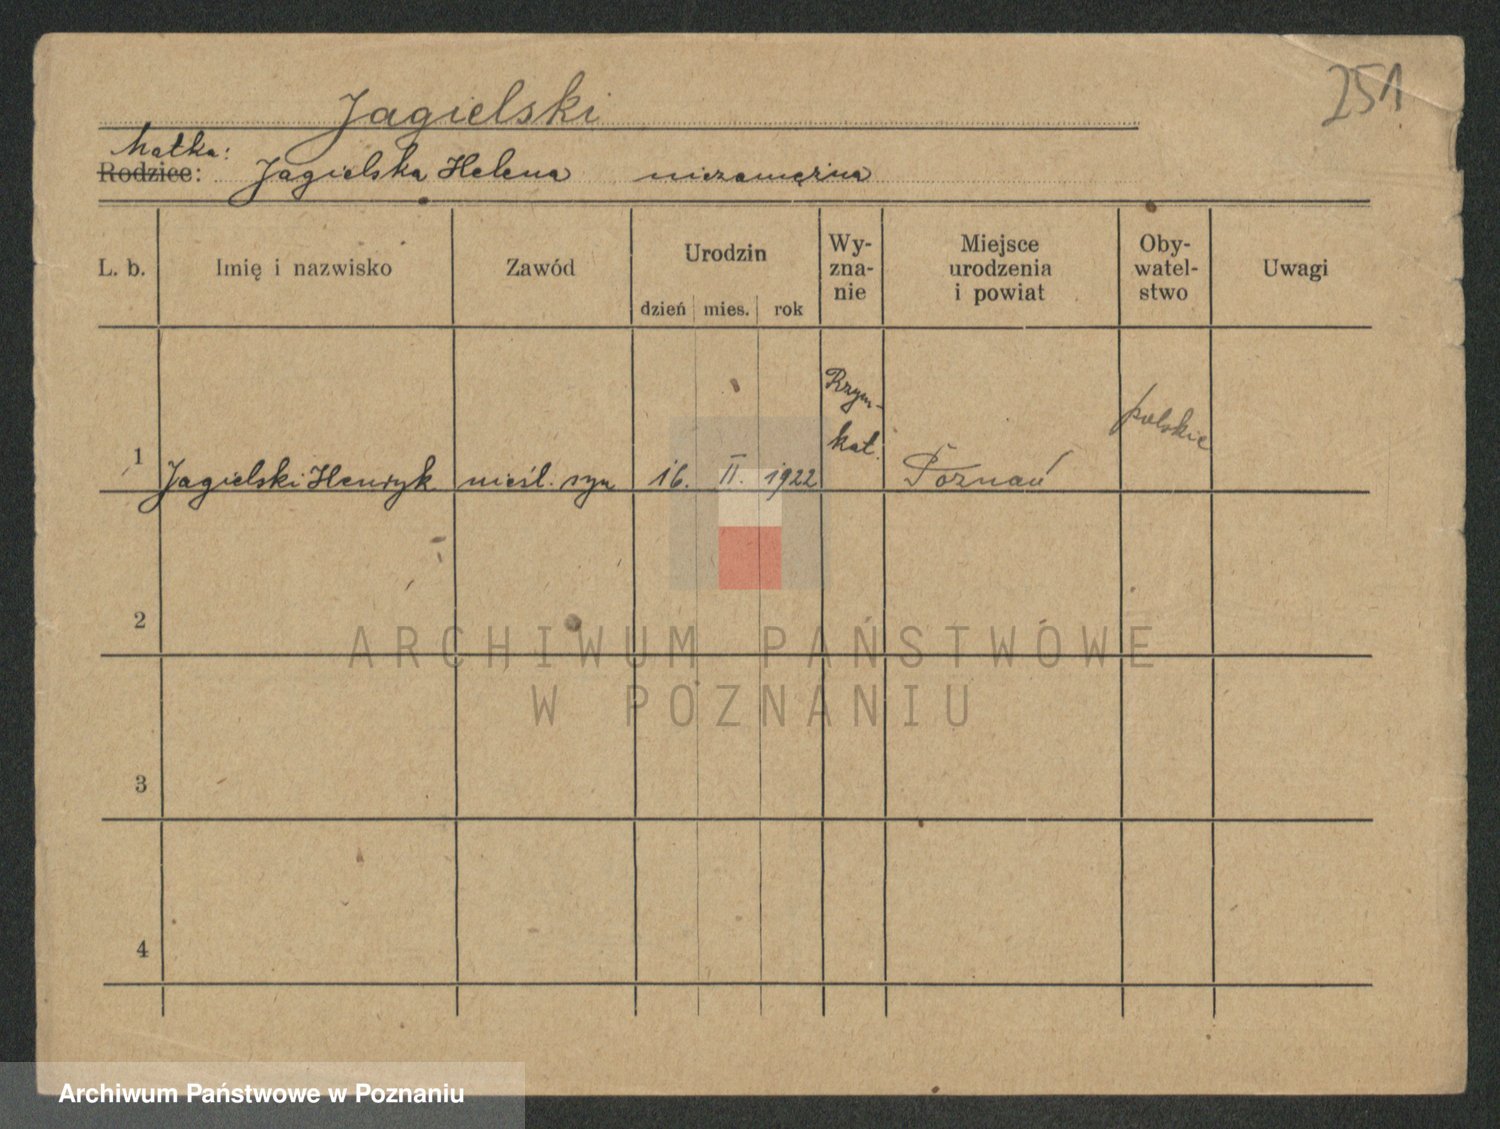 251
Jagielski
Matka:
Rodzice: Jagielska Helena niezamężna
L. b. Imię i nazwisko Zawód Urodzin dzień mies. rok Wy-
zna-
nie Miejsce
urodzenia
i powiat Oby-
watel-
stwo Uwagi
1 Jagielski Henryk nieśl. syn 16. II. 1922 Rzym-
kat. Poznań polskie
2
3
4
ARCHIWUM PAŃSTWOWE
W POZNANIU
Archiwum Państwowe w Poznaniu